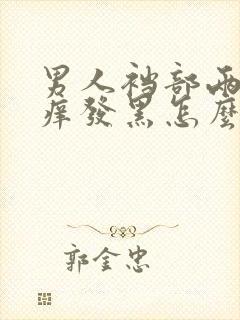 男人裆部两
痒發黑怎麼
郭金忠